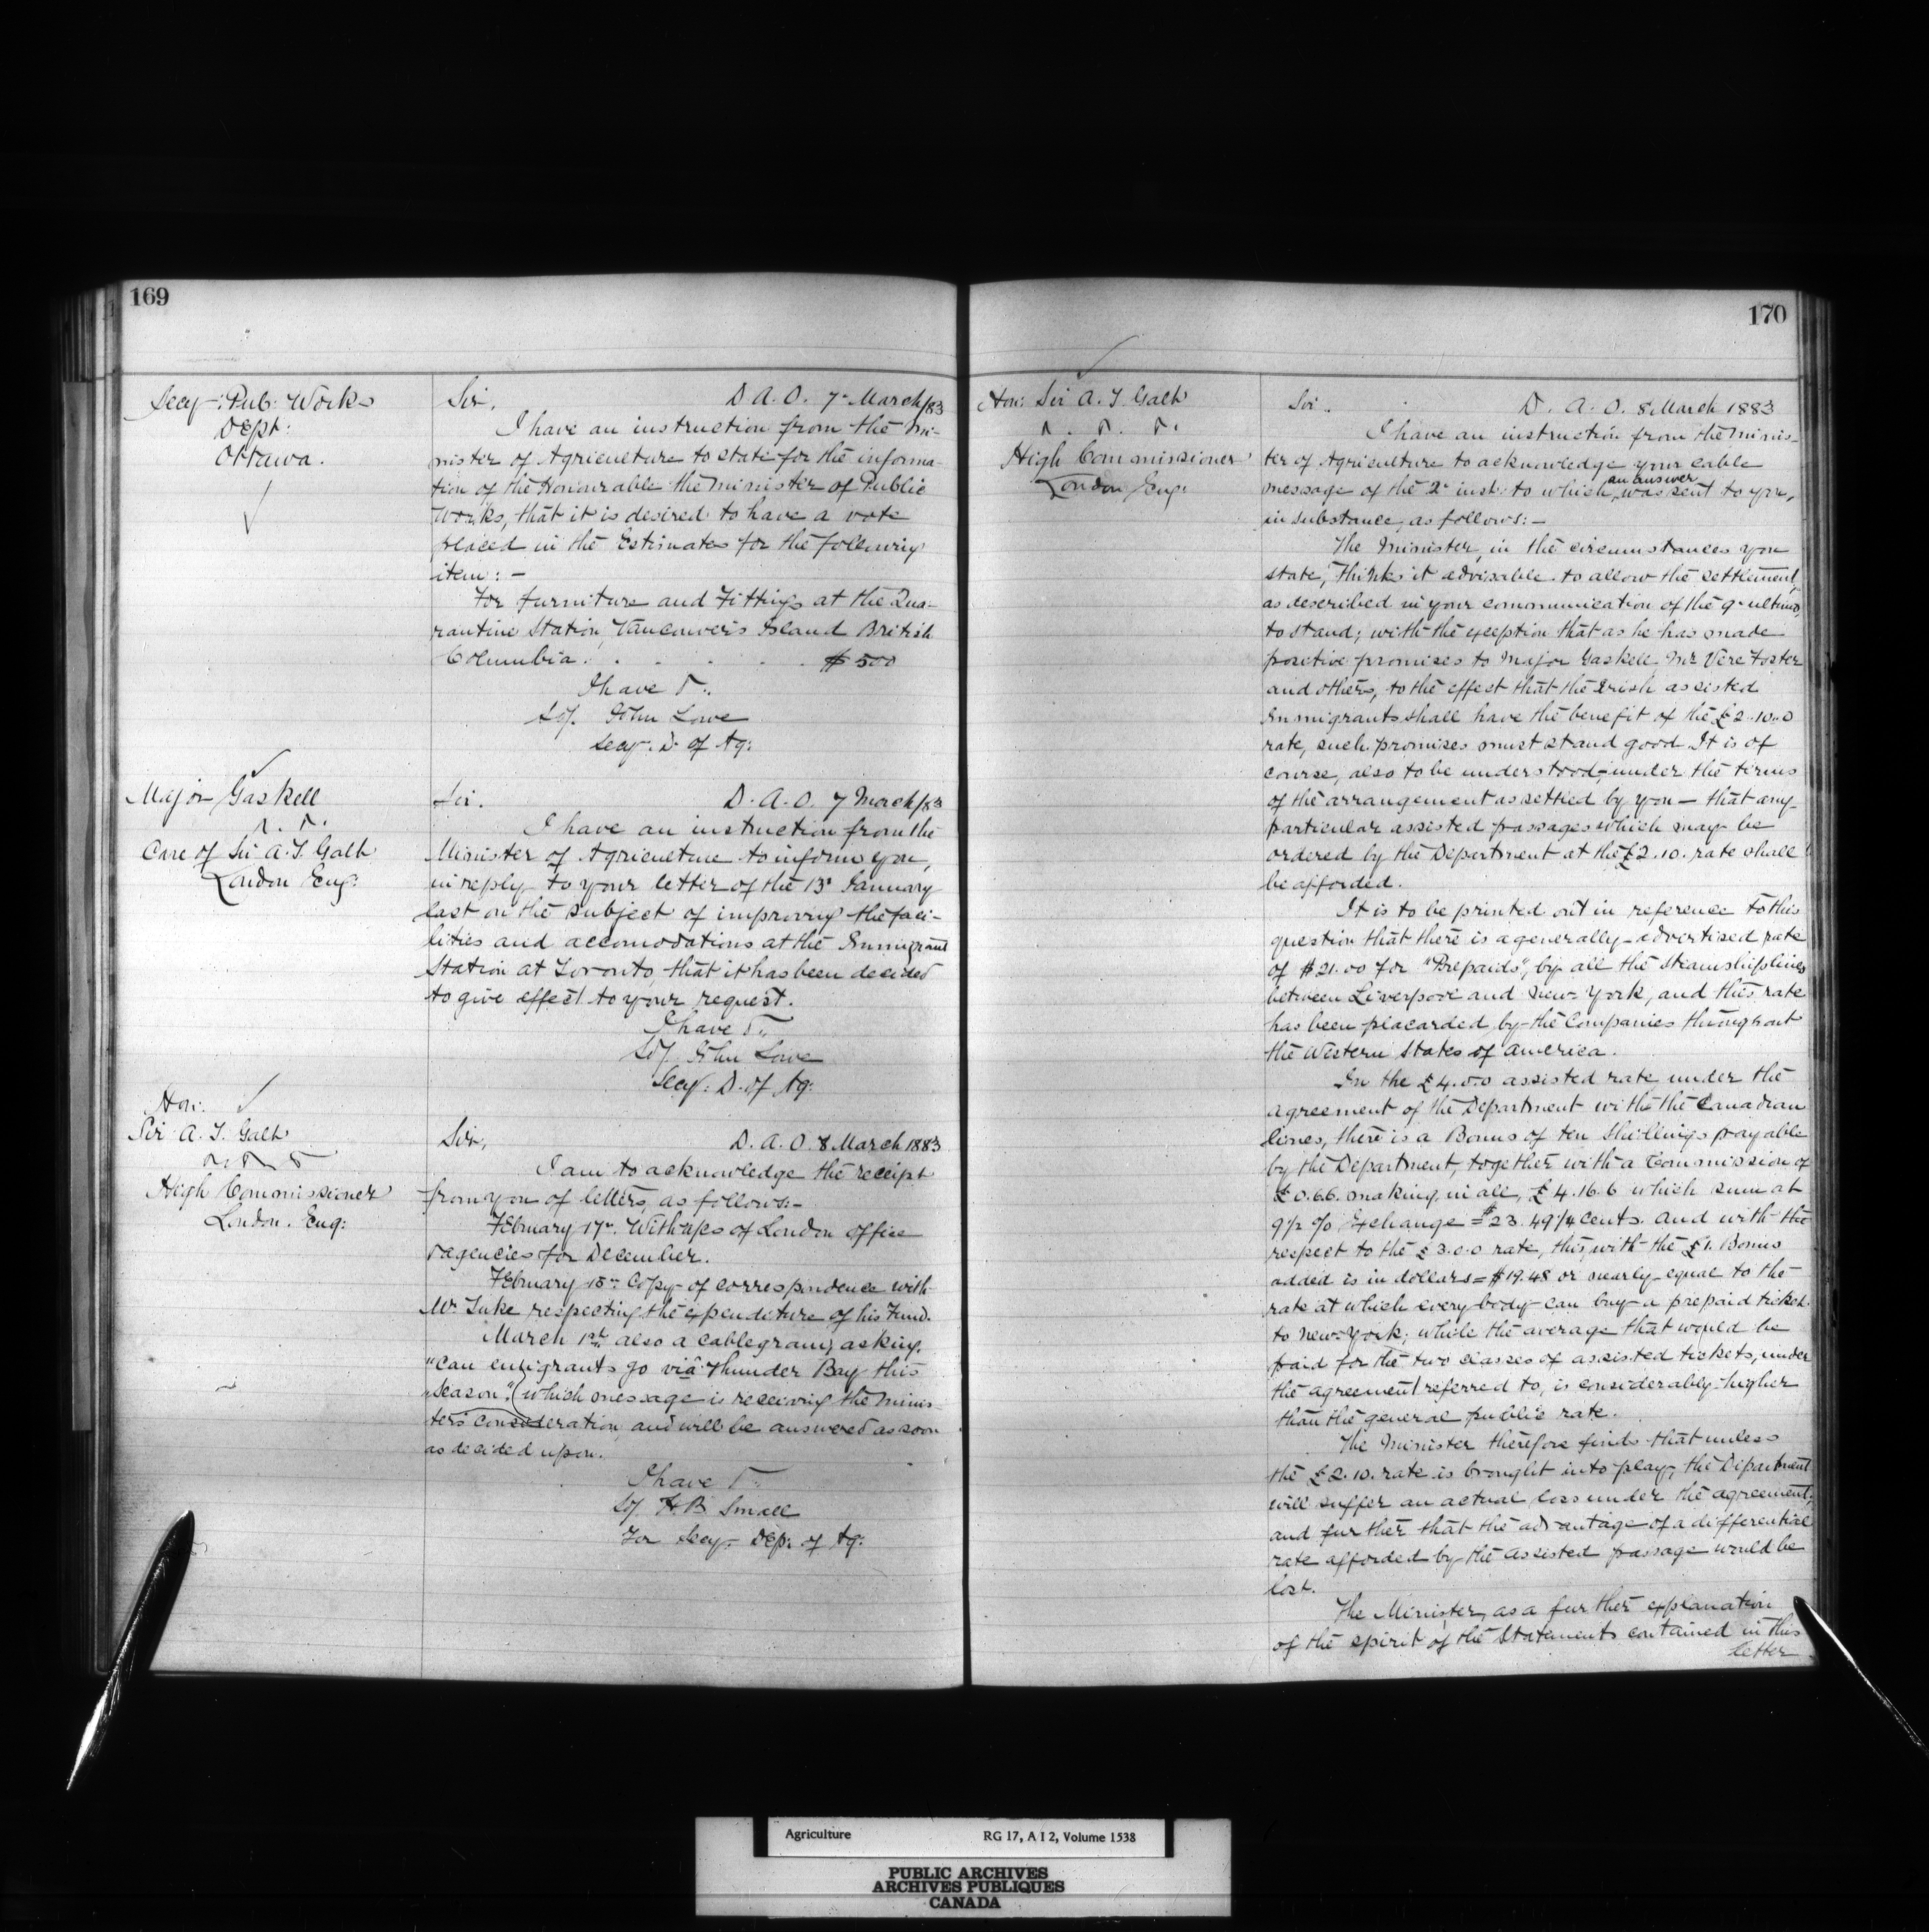 169
Secy: Pub: Works
Dept:
Ottawa.
Sir, D. A. O. 7 March/83
I have an instruction from the Mi-
nister of Agriculture to state for the informa-
tion of the Honourable the Minister of Public
Works, that it is desired to have a vote
placed in the Estimates for the following
item: -
For furniture and Fittings at the Qua-
rantine Station, Vancouver's Island British
Columbia . . . . . . $500
I have
Sd/. John Lowe
Secy. D. of Ag:
Major Gaskell
Care of Sir A. T. Galt
London Eng:
Sir. D. A. O. 7 March/83
I have an instruction from the
Minister of Agriculture to inform you,
in reply to your letter of the 13 January
last on the subject of improving the faci-
lities and accomodations at the Immigrant
Station at Toronto, that it has been decided
to give effect to your request.
I have
Sd/. John Lowe
Secy: D. of Ag:
Hon:
Sir A. T. Galt
High Commissioner
London. Eng:
Sir, D. A. O. 8 March 1883
I am to acknowledge the receipt
from you of letters, as follows:-
February 17. With a/cs of London office
& agencies for December.
February 18. Copy of correspondence with
Mr Tuke respecting the expenditure of his Fund.
March 1st also a cablegram, asking,
"Can emigrants go viâ Thunder Bay this
Season", (which message is receiving the Minis-
ter's consideration and will be answered as soon
as decided upon.
I have
Sd/. H. B. Small
For Secy. Dep. of Ag:
170
Hon: Sir A. T. Galt
High Commissioner
London Eng:
Sir. D. A. O. 8 March 1883
I have an instruction from the Minis-
ter of Agriculture to acknowledge your cable
message of the 2 inst: to which an answer was sent to you,
in substance, as follows: -
The Minister, in the circumstances you
state, thinks it advisable to allow the settlement,
as described in your communication of the 9 ultimo,
to stand; with the exception that as he has made
positive promises to Major Gaskell, Mr Vere Foster
and others, to the effect that the Irish assisted
Immigrants shall have the benefit of the £2.10.0
rate, such promises must stand good. It is of
course, also to be understood, under the terms
of the arrangement as settled by you — that any
particular assisted passages which may be
ordered by the Department at the £2.10. rate shall
be afforded.
It is to be printed out in reference to this
question that there is a generally advertised rate
of $21.00 for "Prepaids", by all the Steamship lines
between Liverpool and New York, and this rate
has been placarded by the Companies throughout
the Western States of America.
In the £4.0.0 assisted rate, under the
agreement of the Department with the Canadian
lines, there is a Bonus of ten Shillings payable
by the Department, together with a Commission of
£0.6.6. making, in all, £4.16.6 which sum at
9½ % Exchange = $23.49¼ cents. And with the
respect to the £3.0.0 rate, this, with the £1. Bonus
added is in dollars = $19.48 or nearly equal to the
rate at which every body can buy a prepaid ticket
to New York; while the average that would be
paid for the two classes of assisted tickets, under
the agreement referred to, is considerably higher
than the general public rate.
The Minister therefore finds that unless
the £2.10. rate is brought into play, the Department
will suffer an actual loss under the agreement;
and further that the advantage of a differential
rate afforded by the assisted passage would be
lost.
The Minister, as a further explanation
of the spirit of the Statements contained in this
letter
Agriculture RG 17, A I 2, Volume 1538
PUBLIC ARCHIVES
ARCHIVES PUBLIQUES
CANADA